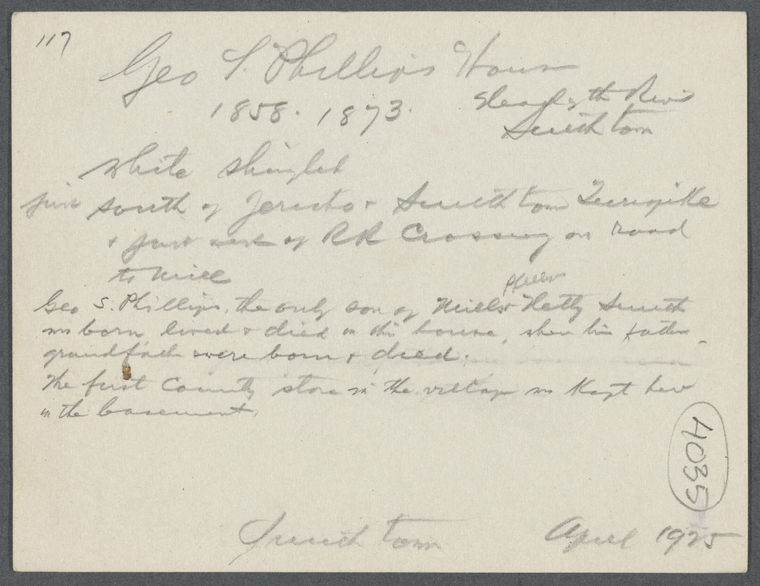 117
Geo S. Phillips House
1858 - 1873.
Head of the River
Smithtown
White shingled
just south of Jericho & Smithtown Turnpike
& just west of RR Crossing on road
to mill
Phillips
Geo S. Phillips, the only son of Mills & Hetty Smith
was born lived & died in this house, where his father
grandfather were born & died.
The first County store in the village was kept here
in the basement.
4035
Smithtown April 1925